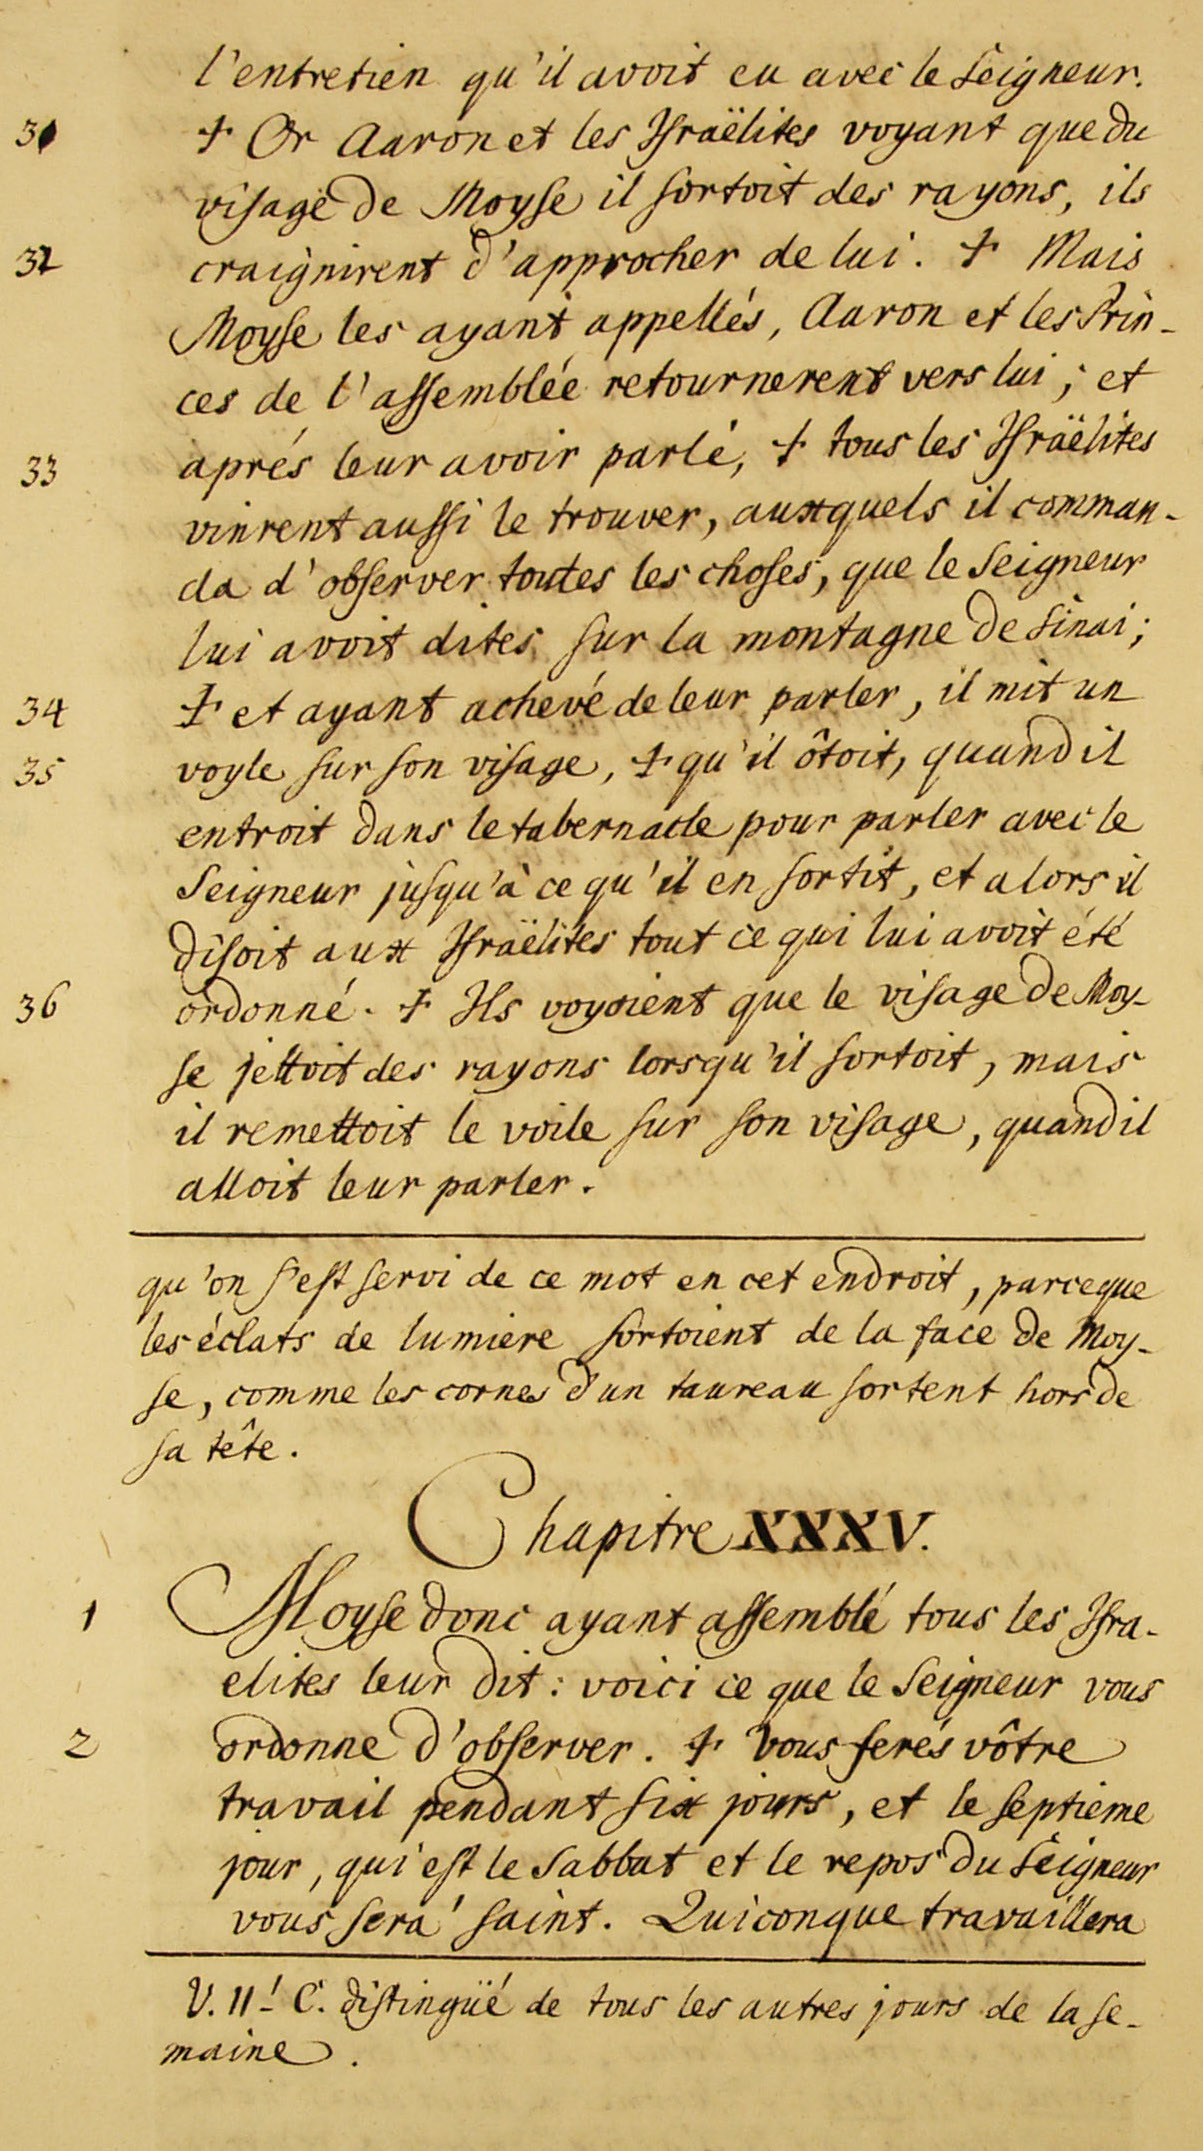 l'entretien qu'il avoit eu avec le Seigneur.
30 + Or Aaron et les Israëlites voyant que du
visage de Moyse il sortoit des rayons, ils
31 craignirent d'approcher de lui. + Mais
Moyse les ayant appellés, Aaron et les Prin-
ces de l'assemblée retournerent vers lui; et
33 aprés leur avoir parlé, + tous les Israëlites
vinrent aussi le trouver, auxquels il comman-
da d'observer toutes les choses, que le Seigneur
lui avoit dites sur la montagne de Sinai;
34 + et ayant achevé de leur parler, il mit un
35 voyle sur son visage, + qu'il ôtoit, quand il
entroit dans le tabernacle pour parler avec le
Seigneur jusqu'à ce qu'il en sortit, et alors il
disoit aux Israëlites tout ce qui lui avoit été
36 ordonné. + Ils voyoient que le visage de Moy-
se jettoit des rayons lorsqu'il sortoit, mais
il remettoit le voile sur son visage, quand il
alloit leur parler.
qu'on s'est servi de ce mot en cet endroit, parceque
les éclats de lumiere sortoient de la face de Moy-
se, comme les cornes d'un taureau sortent hors de
sa tête.
Chapitre XXXV.
1 Moyse donc ayant assemblé tous les Isra-
elites leur dit: voici ce que le Seigneur vous
2 ordonne d'observer. + Vous ferés vôtre
travail pendant six jours, et le septieme
jour, qui est le Sabbat et le repos du Seigneur
vous sera saint. Quiconque travaillera
V. II! C. distingüé de tous les autres jours de la se-
maine.